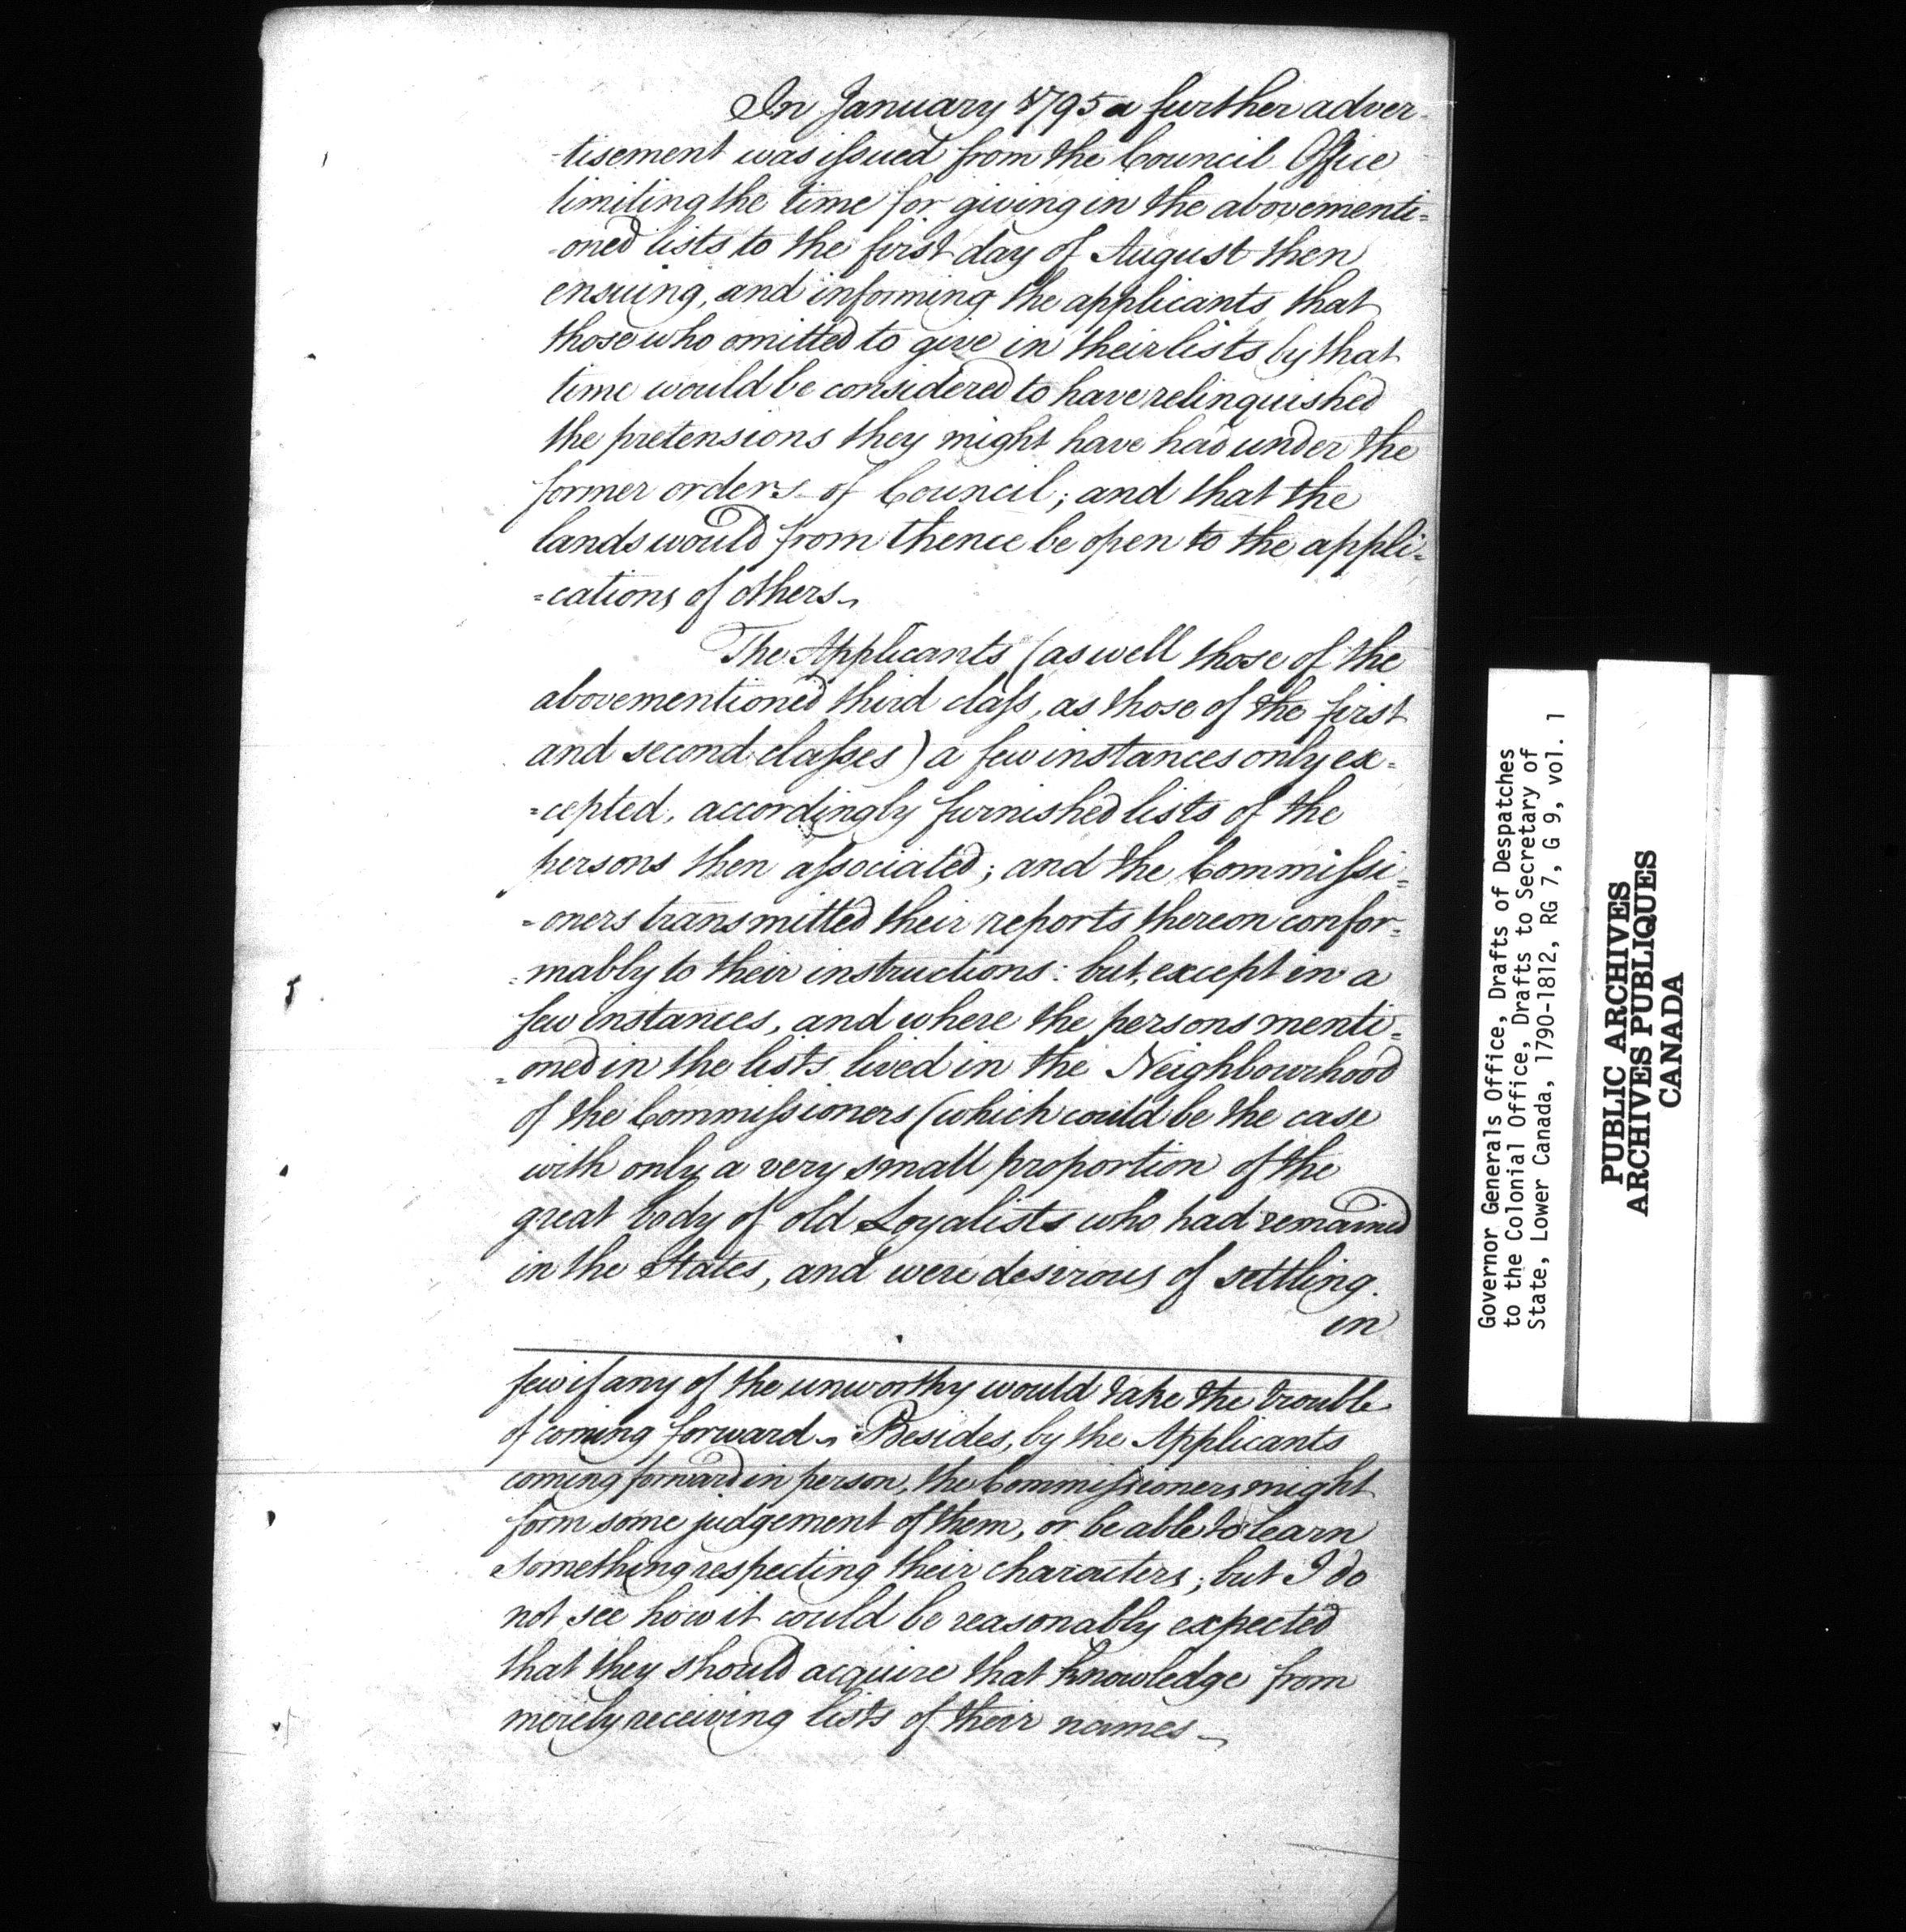 In January 1795 a further adver-
-tisement was issued from the Council Office
limiting the time for giving in the abovementi=
-oned lists to the first day of August then
ensuing, and informing the applicants that
those who omitted to give in their lists by that
time would be considered to have relinquished
the pretensions they might have had under the
former orders of Council; and that the
lands would from thence be open to the appli=
=cations of others.
The Applicants (as well those of the
abovementioned third class, as those of the first
and second classes) a few instances only ex=
=cepted, accordingly furnished lists of the
persons then associated; and the Commissi=
=oners transmitted their reports thereon confor=
=mably to their instructions: but, except in a
few instances, and where the persons menti=
=oned in the lists lived in the Neighbourhood
of the Commissioners (which could be the case
with only a very small proportion of the
great body of old Loyalists who had remained
in the States, and were desirous of settling.
in
few if any of the unworthy would take the trouble
of coming forward. Besides, by the Applicants
coming forward in person, the Commissioners might
form some judgement of them, or be able to learn
something respecting their characters; but I do
not see how it could be reasonably expected
that they should acquire that knowledge from
merely receiving lists of their names.
Governor Generals Office, Drafts of Despatches
to the Colonial Office, Drafts to Secretary of
State, Lower Canada, 1790-1812, RG 7, G 9, vol. 1
PUBLIC ARCHIVES
ARCHIVES PUBLIQUES
CANADA